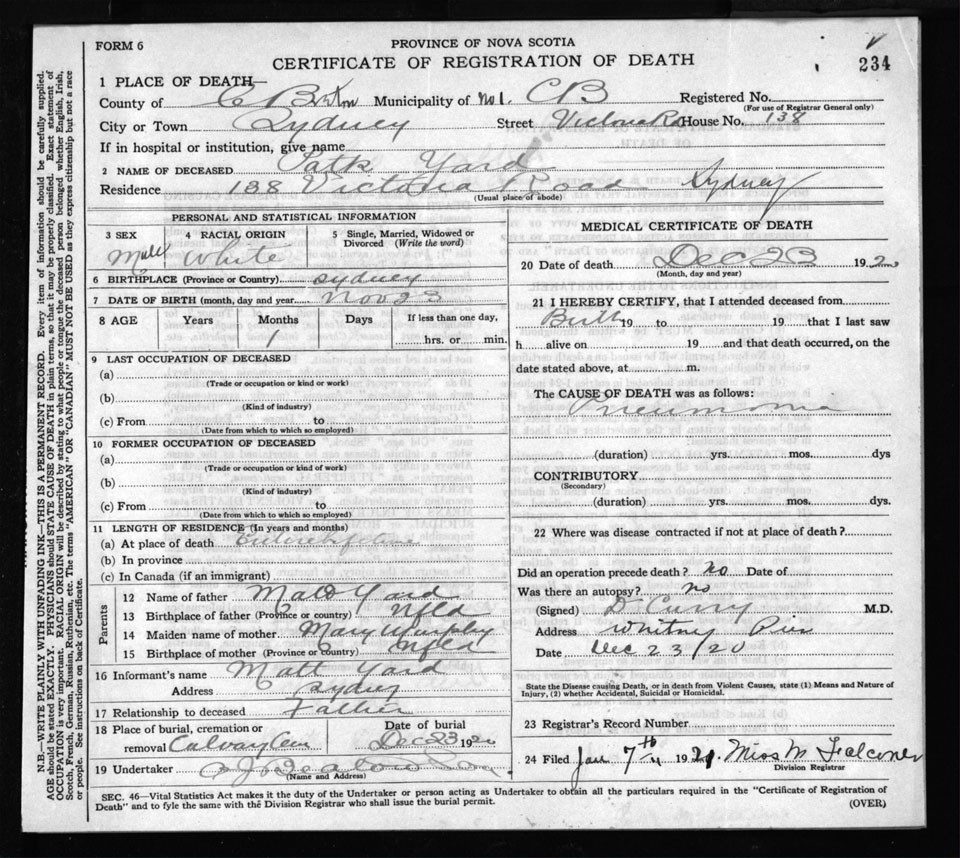 FORM 6
PROVINCE OF NOVA SCOTIA
CERTIFICATE OF REGISTRATION OF DEATH
234
1 PLACE OF DEATH—
County of C Breton Municipality of No 1. CB Registered No.
(For use of Registrar General only)
City or Town Sydney Street Victoria Rd House No. 138
If in hospital or institution, give name
2 NAME OF DECEASED Patk Yard
Residence 138 Victoria Road Sydney
(Usual place of abode)
PERSONAL AND STATISTICAL INFORMATION
3 SEX 4 RACIAL ORIGIN 5 Single, Married, Widowed or Divorced (Write the word)
Male White
6 BIRTHPLACE (Province or Country) Sydney
7 DATE OF BIRTH (month, day and year) Nov 23
8 AGE Years Months Days If less than one day,
1 hrs. or min.
9 LAST OCCUPATION OF DECEASED
(a)
(Trade or occupation or kind or work)
(b)
(Kind of industry)
(c) From to
(Date from which to which so employed)
10 FORMER OCCUPATION OF DECEASED
(a)
(Trade or occupation or kind of work)
(b)
(Kind of industry)
(c) From to
(Date from which to which so employed)
11 LENGTH OF RESIDENCE (In years and months)
(a) At place of death Entire lifetime
(b) In province
(c) In Canada (if an immigrant)
Parents
12 Name of father Matt Yard
13 Birthplace of father (Province or country) Nfld
14 Maiden name of mother Mary Murphy
15 Birthplace of mother (Province or country) Nfld
16 Informant's name Matt Yard
Address Sydney
17 Relationship to deceased Father
18 Place of burial, cremation or removal Calvary Cem
Date of burial
Dec 23 1920
19 Undertaker
(Name and Address)
MEDICAL CERTIFICATE OF DEATH
20 Date of death Dec 23 1920
(Month, day and year)
21 I HEREBY CERTIFY, that I attended deceased from
Birth 19 to 19 that I last saw
h alive on 19 and that death occurred, on the
date stated above, at m.
The CAUSE OF DEATH was as follows:
Pneumonia
(duration) yrs. mos. dys
CONTRIBUTORY
(Secondary)
(duration) yrs. mos. dys.
22 Where was disease contracted if not at place of death?
Did an operation precede death? No Date of
Was there an autopsy? no
(Signed) D Curry M.D.
Address Whitney Pier
Date Dec 23/20
State the Disease causing Death, or in death from Violent Causes, state (1) Means and Nature of
Injury, (2) whether Accidental, Suicidal or Homicidal.
23 Registrar's Record Number
24 Filed Jan 7th 1921. Miss M Falconer
Division Registrar
SEC. 46—Vital Statistics Act makes it the duty of the Undertaker or person acting as Undertaker to obtain all the particulars required in the "Certificate of Registration of
Death" and to fyle the same with the Division Registrar who shall issue the burial permit. (OVER)
N.B.—WRITE PLAINLY WITH UNFADING INK—THIS IS A PERMANENT RECORD. Every item of information should be carefully supplied.
AGE should be stated EXACTLY. PHYSICIANS should STATE CAUSE OF DEATH in plain terms, so that it may be properly classified. Exact statement of
OCCUPATION is very important. RACIAL ORIGIN will be described by stating to what people or tongue the deceased person belonged whether English, Irish,
Scotch, French, German, Russian, Ruthenian, etc. The terms "AMERICAN" OR "CANADIAN" MUST NOT BE USED as they express citizenship but not a race
or people. See instructions on back of Certificate.